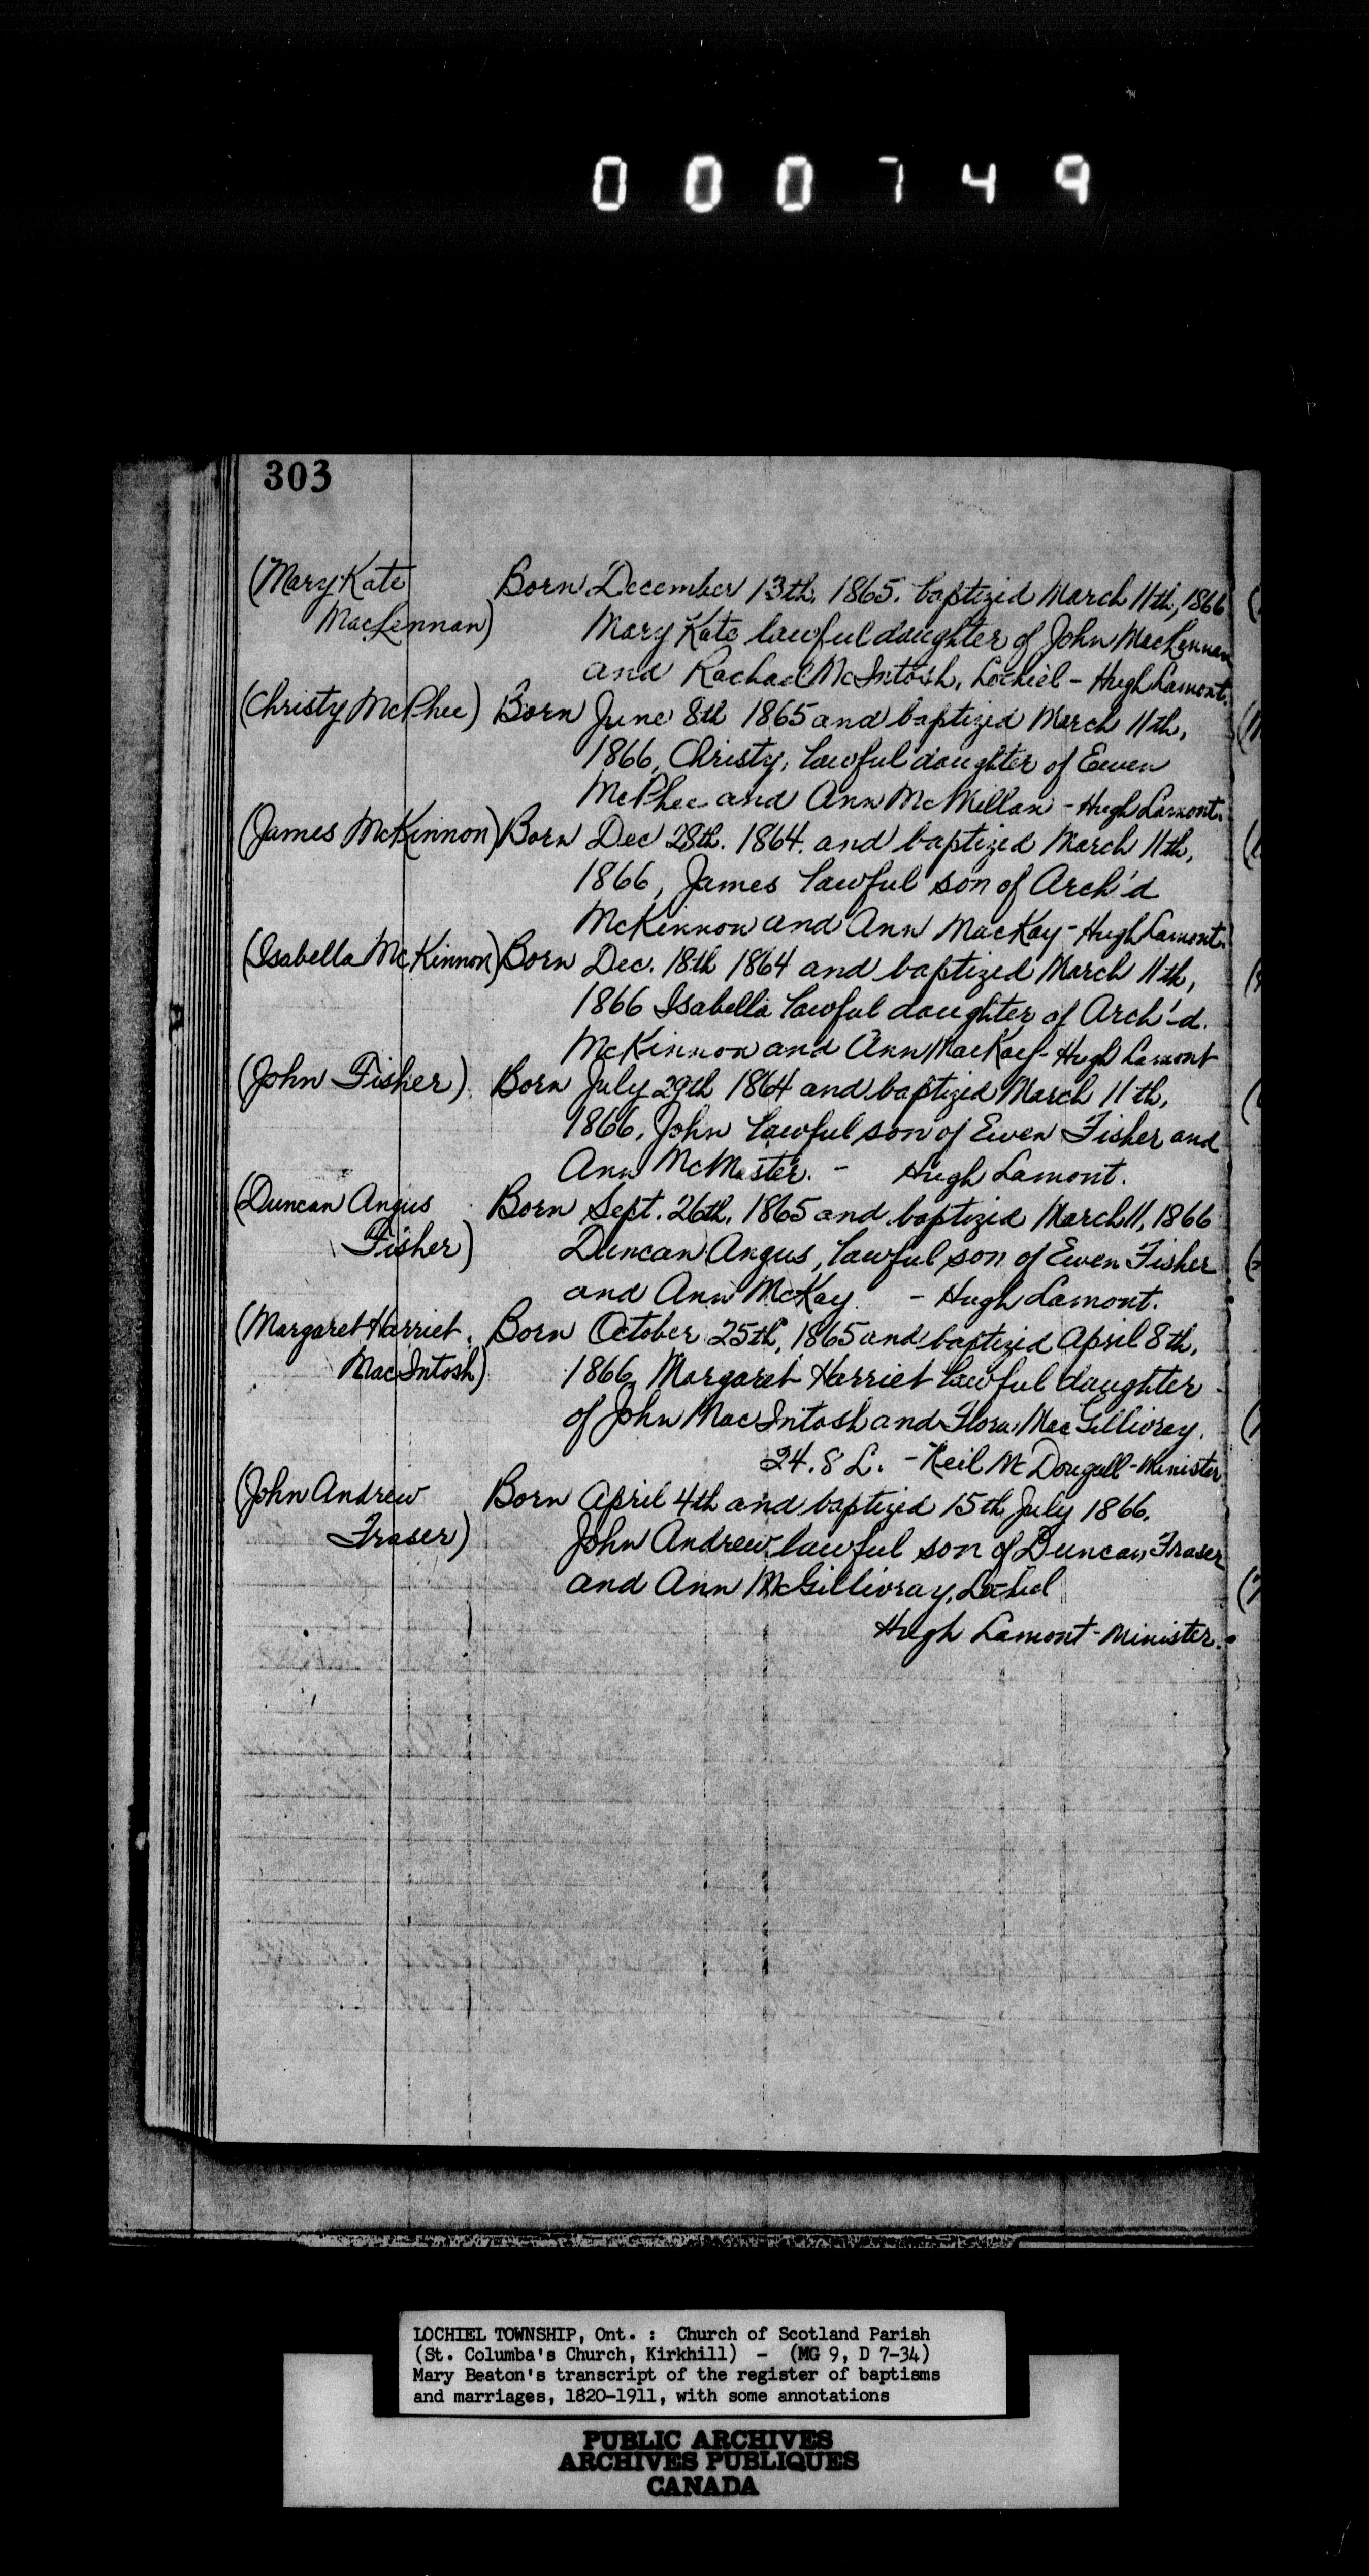 000749
303
(Mary Kate Born December 13th. 1865. baptized March 11th, 1866
MacLennan) Mary Kate lawful daughter of John MacLennan
and Rachael McIntosh, Lochiel - Hugh Lamont.
(Christy McPhee) Born June 8th 1865 and baptized March 11th,
1866, Christy, lawful daughter of Ewen
McPhee and Ann McMillan - Hugh Lamont.
(James McKinnon) Born Dec 28th. 1864. and baptized March 11th,
1866, James lawful son of Arch'd
McKinnon and Ann MacKay - Hugh Lamont.
(Isabella McKinnon) Born Dec. 18th 1864 and baptized March 11th,
1866 Isabella lawful daughter of Arch'd.
McKinnon and Ann MacKay - Hugh Lamont
(John Fisher) Born July 29th 1864 and baptized March 11th,
1866, John lawful son of Ewen Fisher and
Ann McMaster. - Hugh Lamont.
(Duncan Angus Born Sept. 26th, 1865 and baptized March 11, 1866
Fisher) Duncan Angus, lawful son of Ewen Fisher
and Ann McKay. - Hugh Lamont.
(Margaret Harriet Born October 25th, 1865 and baptized April 8th,
MacIntosh) 1866, Margaret Harriet lawful daughter
of John MacIntosh and Flora MacGillivray.
24.8 L. - Neil McDougall - Minister
(John Andrew Born April 4th and baptized 15th July 1866.
Fraser) John Andrew lawful son of Duncan Fraser
and Ann McGillivray, Lochiel
Hugh Lamont - Minister.
LOCHIEL TOWNSHIP, Ont. : Church of Scotland Parish
(St. Columba's Church, Kirkhill) - (MG 9, D 7-34)
Mary Beaton's transcript of the register of baptisms
and marriages, 1820-1911, with some annotations
PUBLIC ARCHIVES
ARCHIVES PUBLIQUES
CANADA